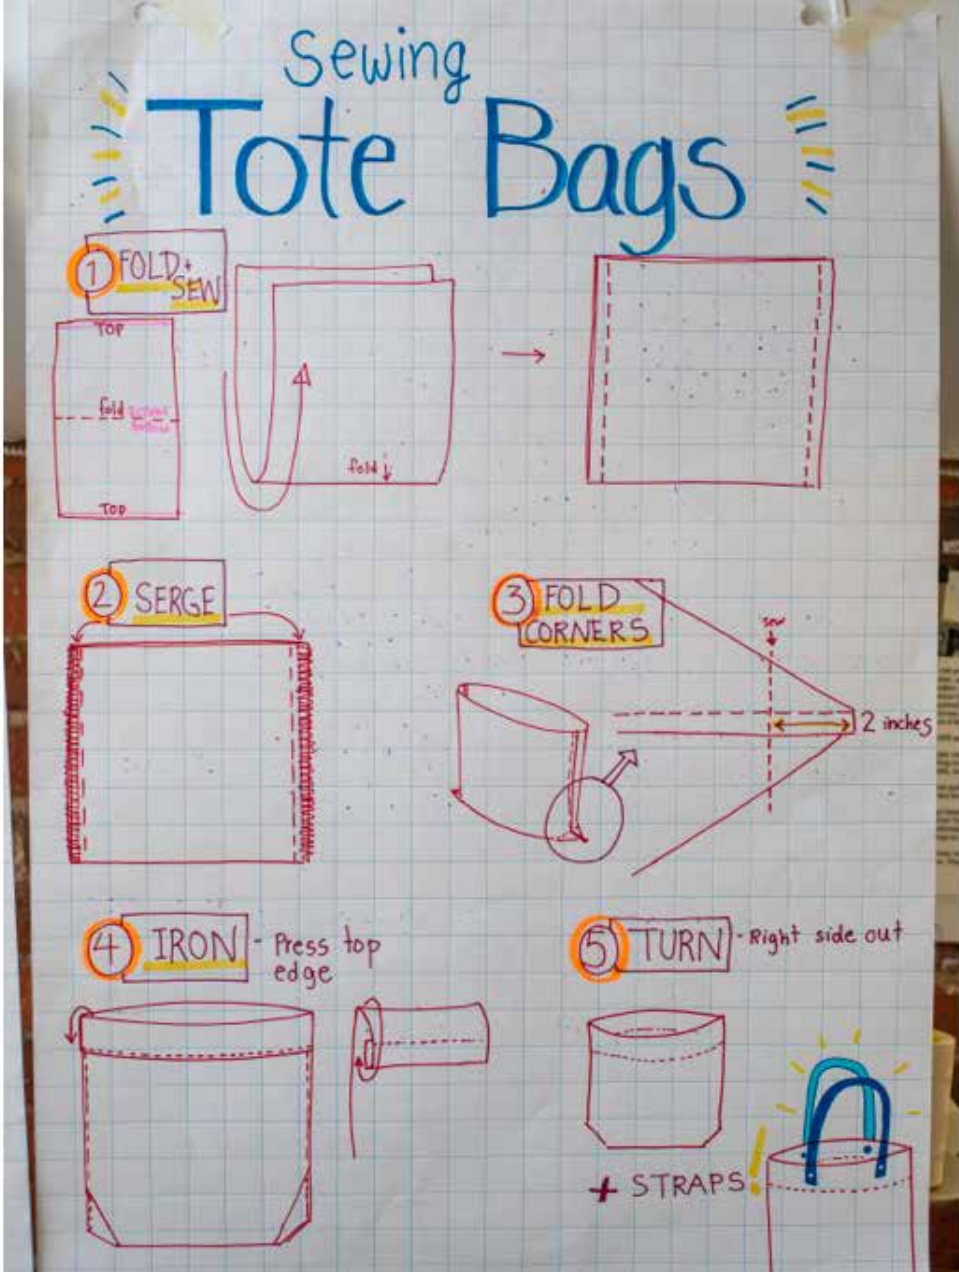 Sewing
Tote Bags
1 FOLD +
SEW
TOP
fold
TOP
fold ↓
2 SERGE
3 FOLD
CORNERS
sew
2 inches
4 IRON - Press top
edge
5 TURN - Right side out
+ STRAPS!